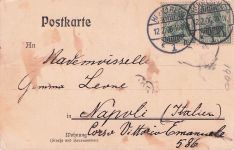 Postkarte
An
Mademoiselle
Gemma Leone
in
Napoli (Italien)
Wohnung
Corso Vittorio Emanuele
(Straße und Hausnummer)
586